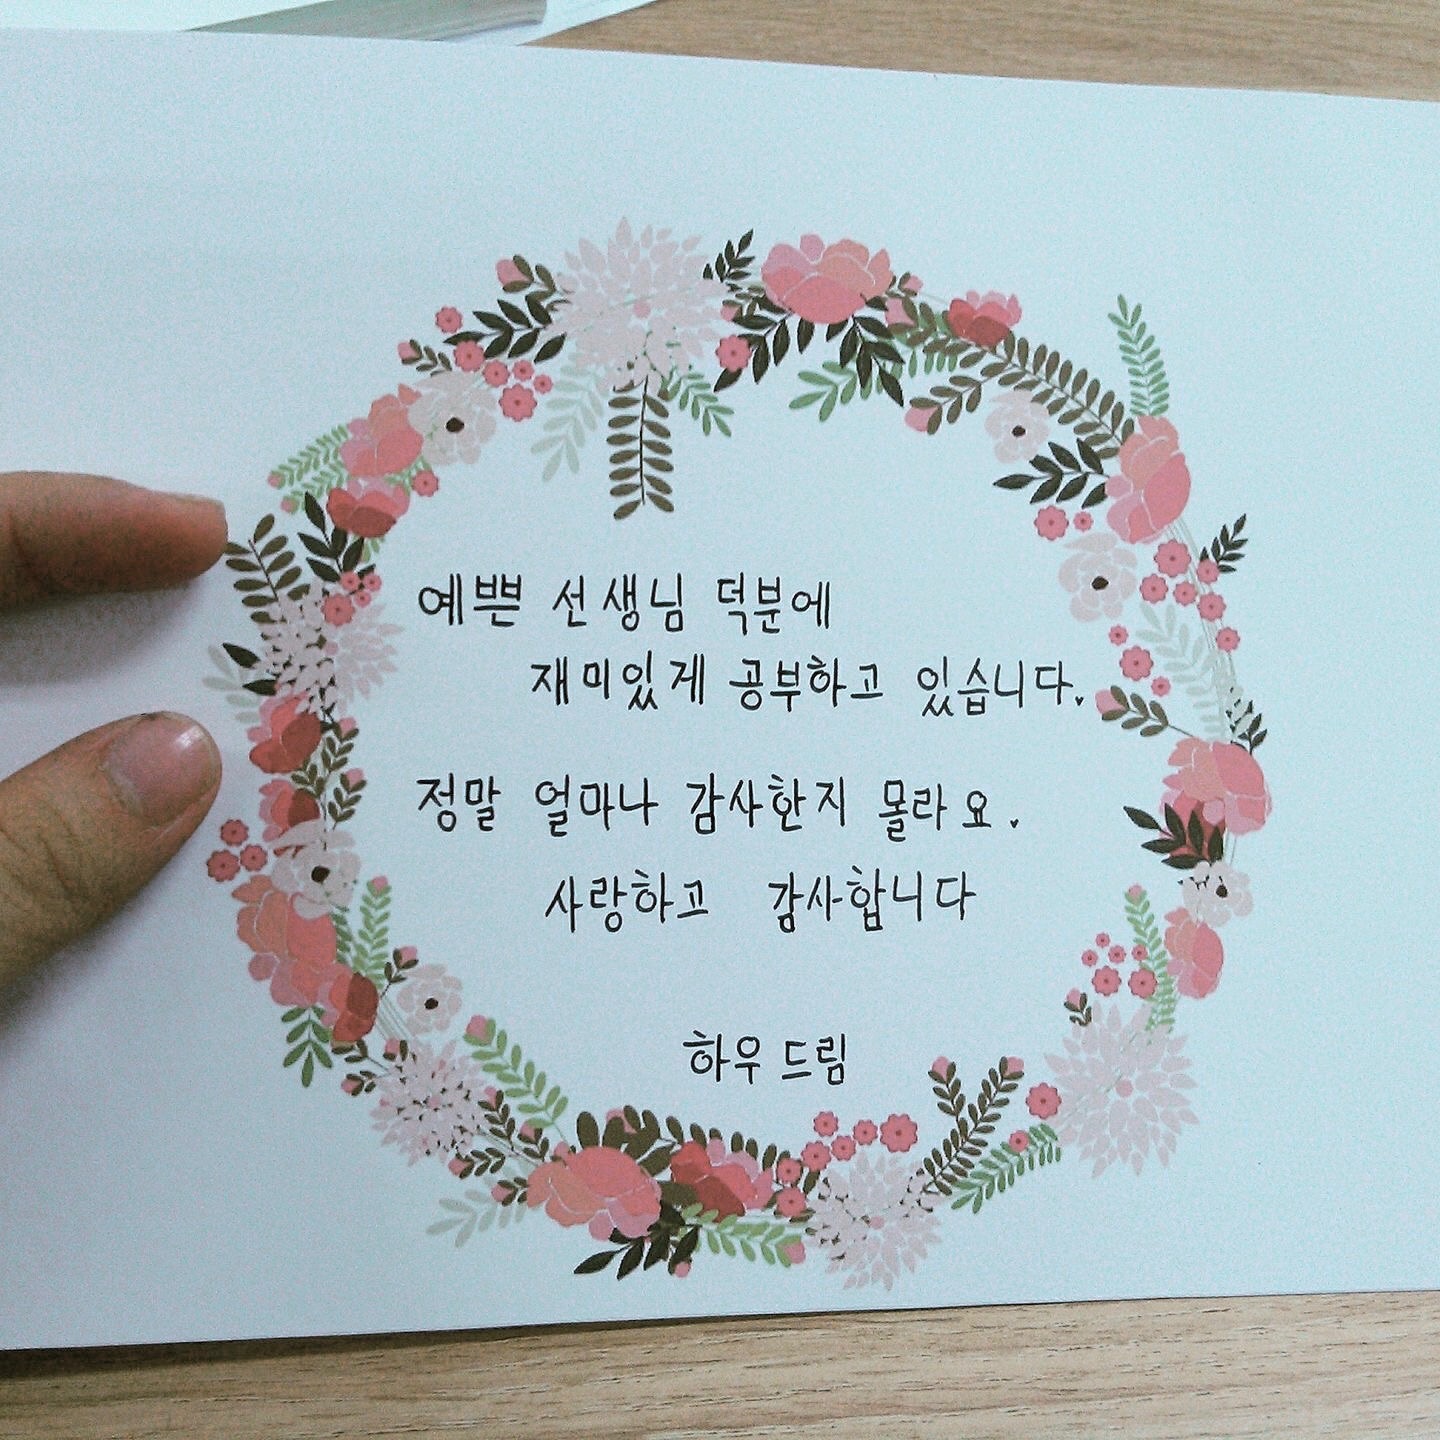 예쁜 선생님 덕분에
재미있게 공부하고 있습니다.
정말 얼마나 감사한지 몰라요.
사랑하고 감사합니다
하우 드림